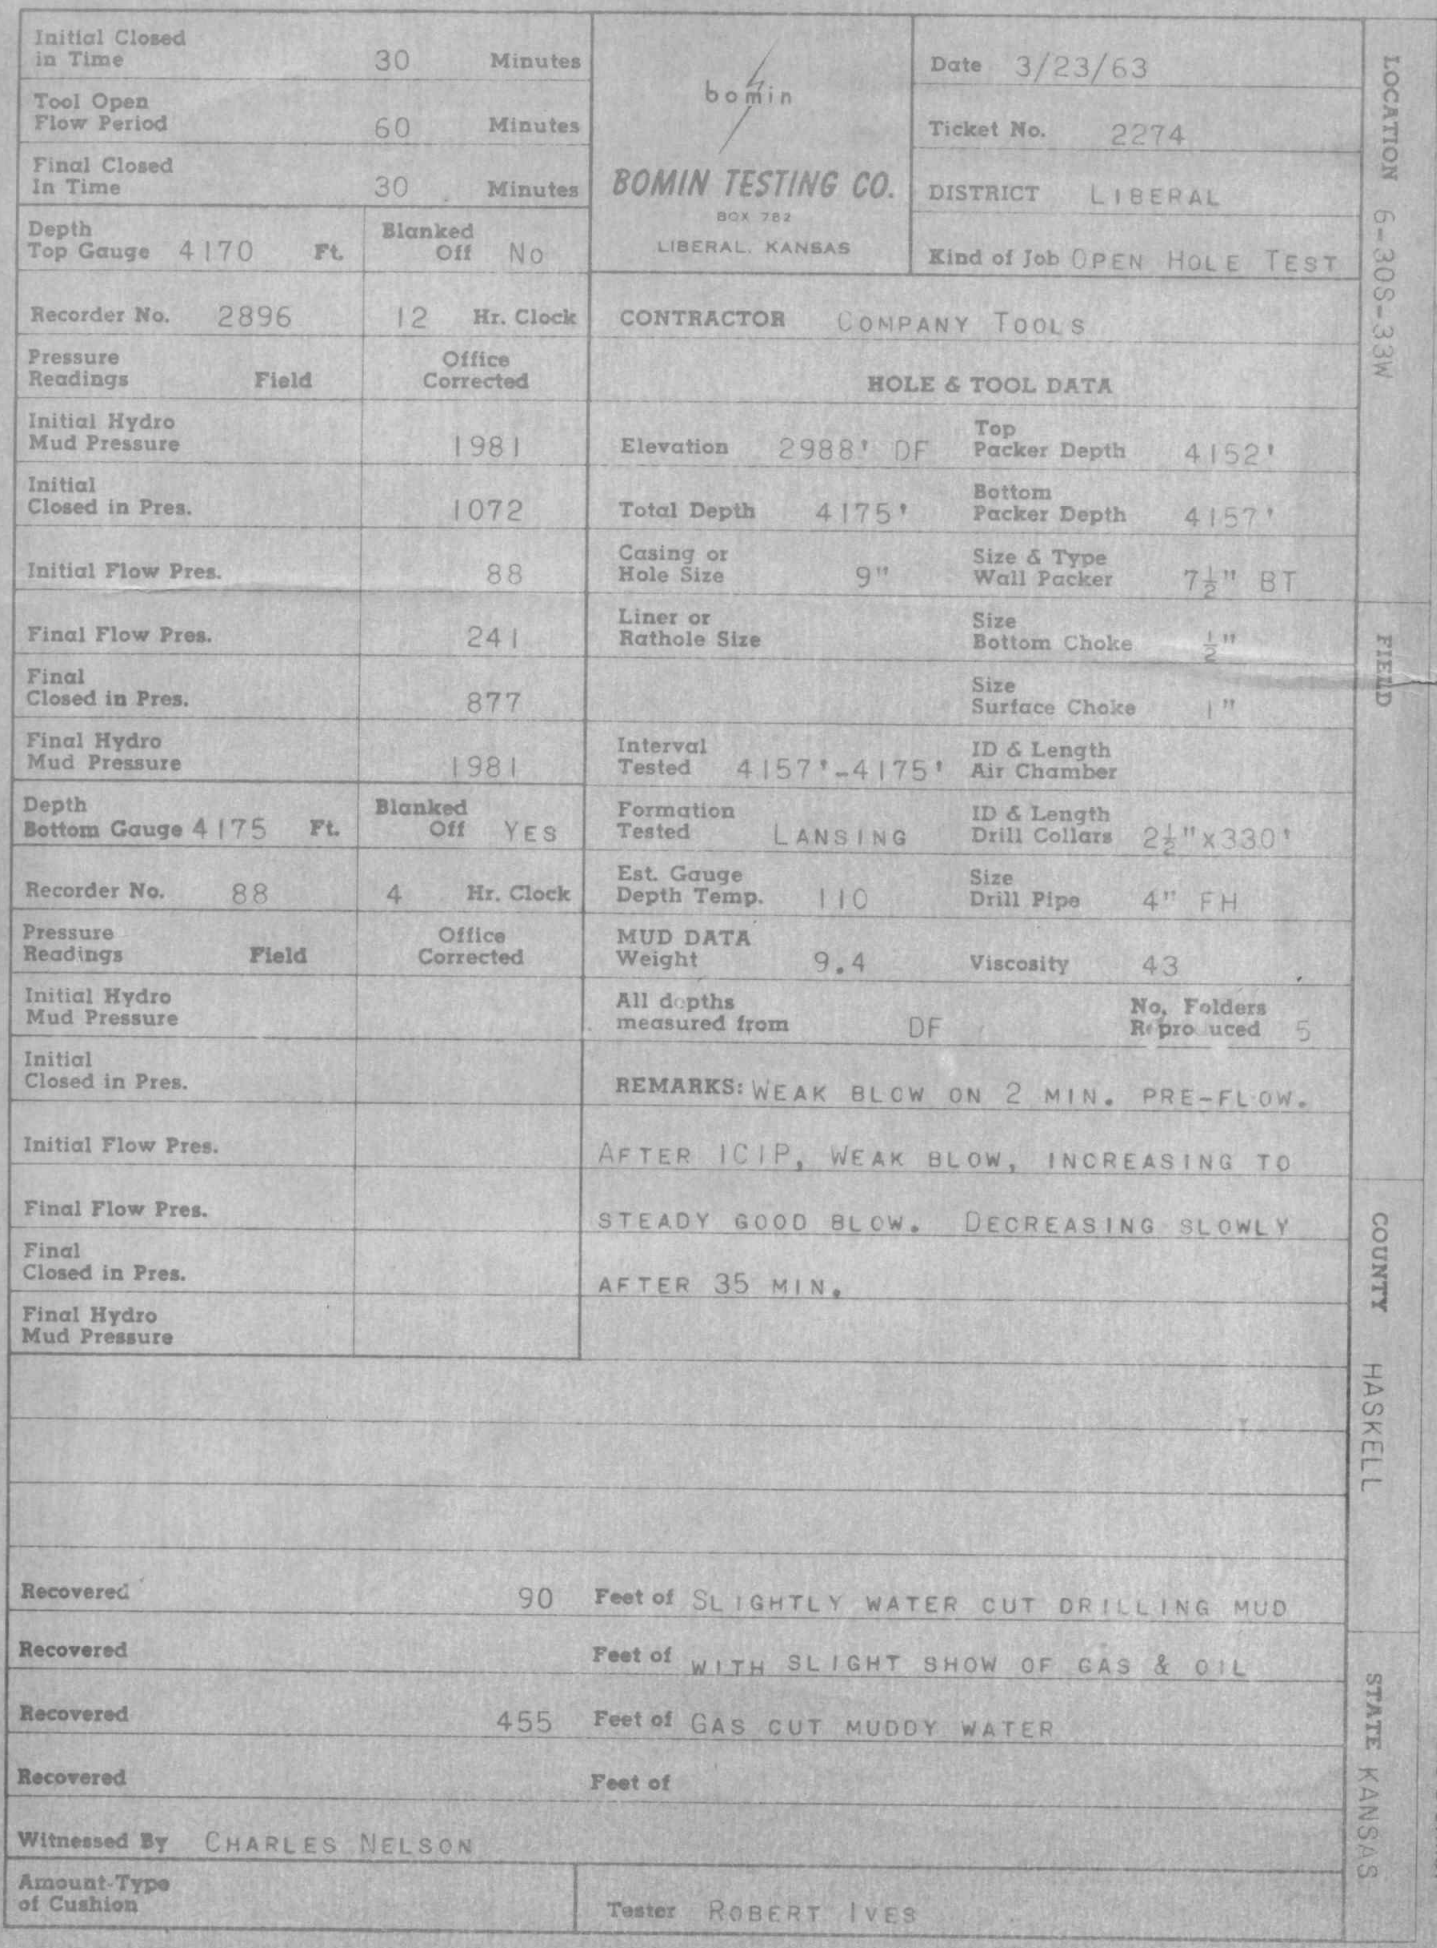 Initial Closed
in Time 30 Minutes
Tool Open
Flow Period 60 Minutes
Final Closed
In Time 30 Minutes
bomin
BOMIN TESTING CO.
BOX 782
LIBERAL, KANSAS
Date 3/23/63
Ticket No. 2274
DISTRICT LIBERAL
Kind of Job OPEN HOLE TEST
Depth
Top Gauge 4170 Ft.
Blanked
Off No
Recorder No. 2896 12 Hr. Clock
Pressure
Readings Field
Office
Corrected
Initial Hydro
Mud Pressure 1981
Initial
Closed in Pres. 1072
Initial Flow Pres. 88
Final Flow Pres. 241
Final
Closed in Pres. 877
Final Hydro
Mud Pressure 1981
Depth
Bottom Gauge 4175 Ft.
Blanked
Off YES
Recorder No. 88 4 Hr. Clock
Pressure
Readings Field
Office
Corrected
Initial Hydro
Mud Pressure
Initial
Closed in Pres.
Initial Flow Pres.
Final Flow Pres.
Final
Closed in Pres.
Final Hydro
Mud Pressure
CONTRACTOR COMPANY TOOLS
HOLE & TOOL DATA
Elevation 2988' DF
Top
Packer Depth 4152'
Total Depth 4175'
Bottom
Packer Depth 4157'
Casing or
Hole Size 9"
Size & Type
Wall Packer 7½" BT
Liner or
Rathole Size
Size
Bottom Choke ½"
Size
Surface Choke 1"
Interval
Tested 4157'-4175'
ID & Length
Air Chamber
Formation
Tested LANSING
ID & Length
Drill Collars 2½"x330'
Est. Gauge
Depth Temp. 110
Size
Drill Pipe 4" FH
MUD DATA
Weight 9.4 Viscosity 43
All depths
measured from DF
No. Folders
Reproduced 5
REMARKS: WEAK BLOW ON 2 MIN. PRE-FLOW.
AFTER ICIP, WEAK BLOW, INCREASING TO
STEADY GOOD BLOW. DECREASING SLOWLY
AFTER 35 MIN.
Recovered 90 Feet of SLIGHTLY WATER CUT DRILLING MUD
Recovered Feet of WITH SLIGHT SHOW OF GAS & OIL
Recovered 455 Feet of GAS CUT MUDDY WATER
Recovered Feet of
Witnessed By CHARLES NELSON
Amount-Type
of Cushion
Tester ROBERT IVES
LOCATION 6-30S-33W
FIELD
COUNTY HASKELL
STATE KANSAS